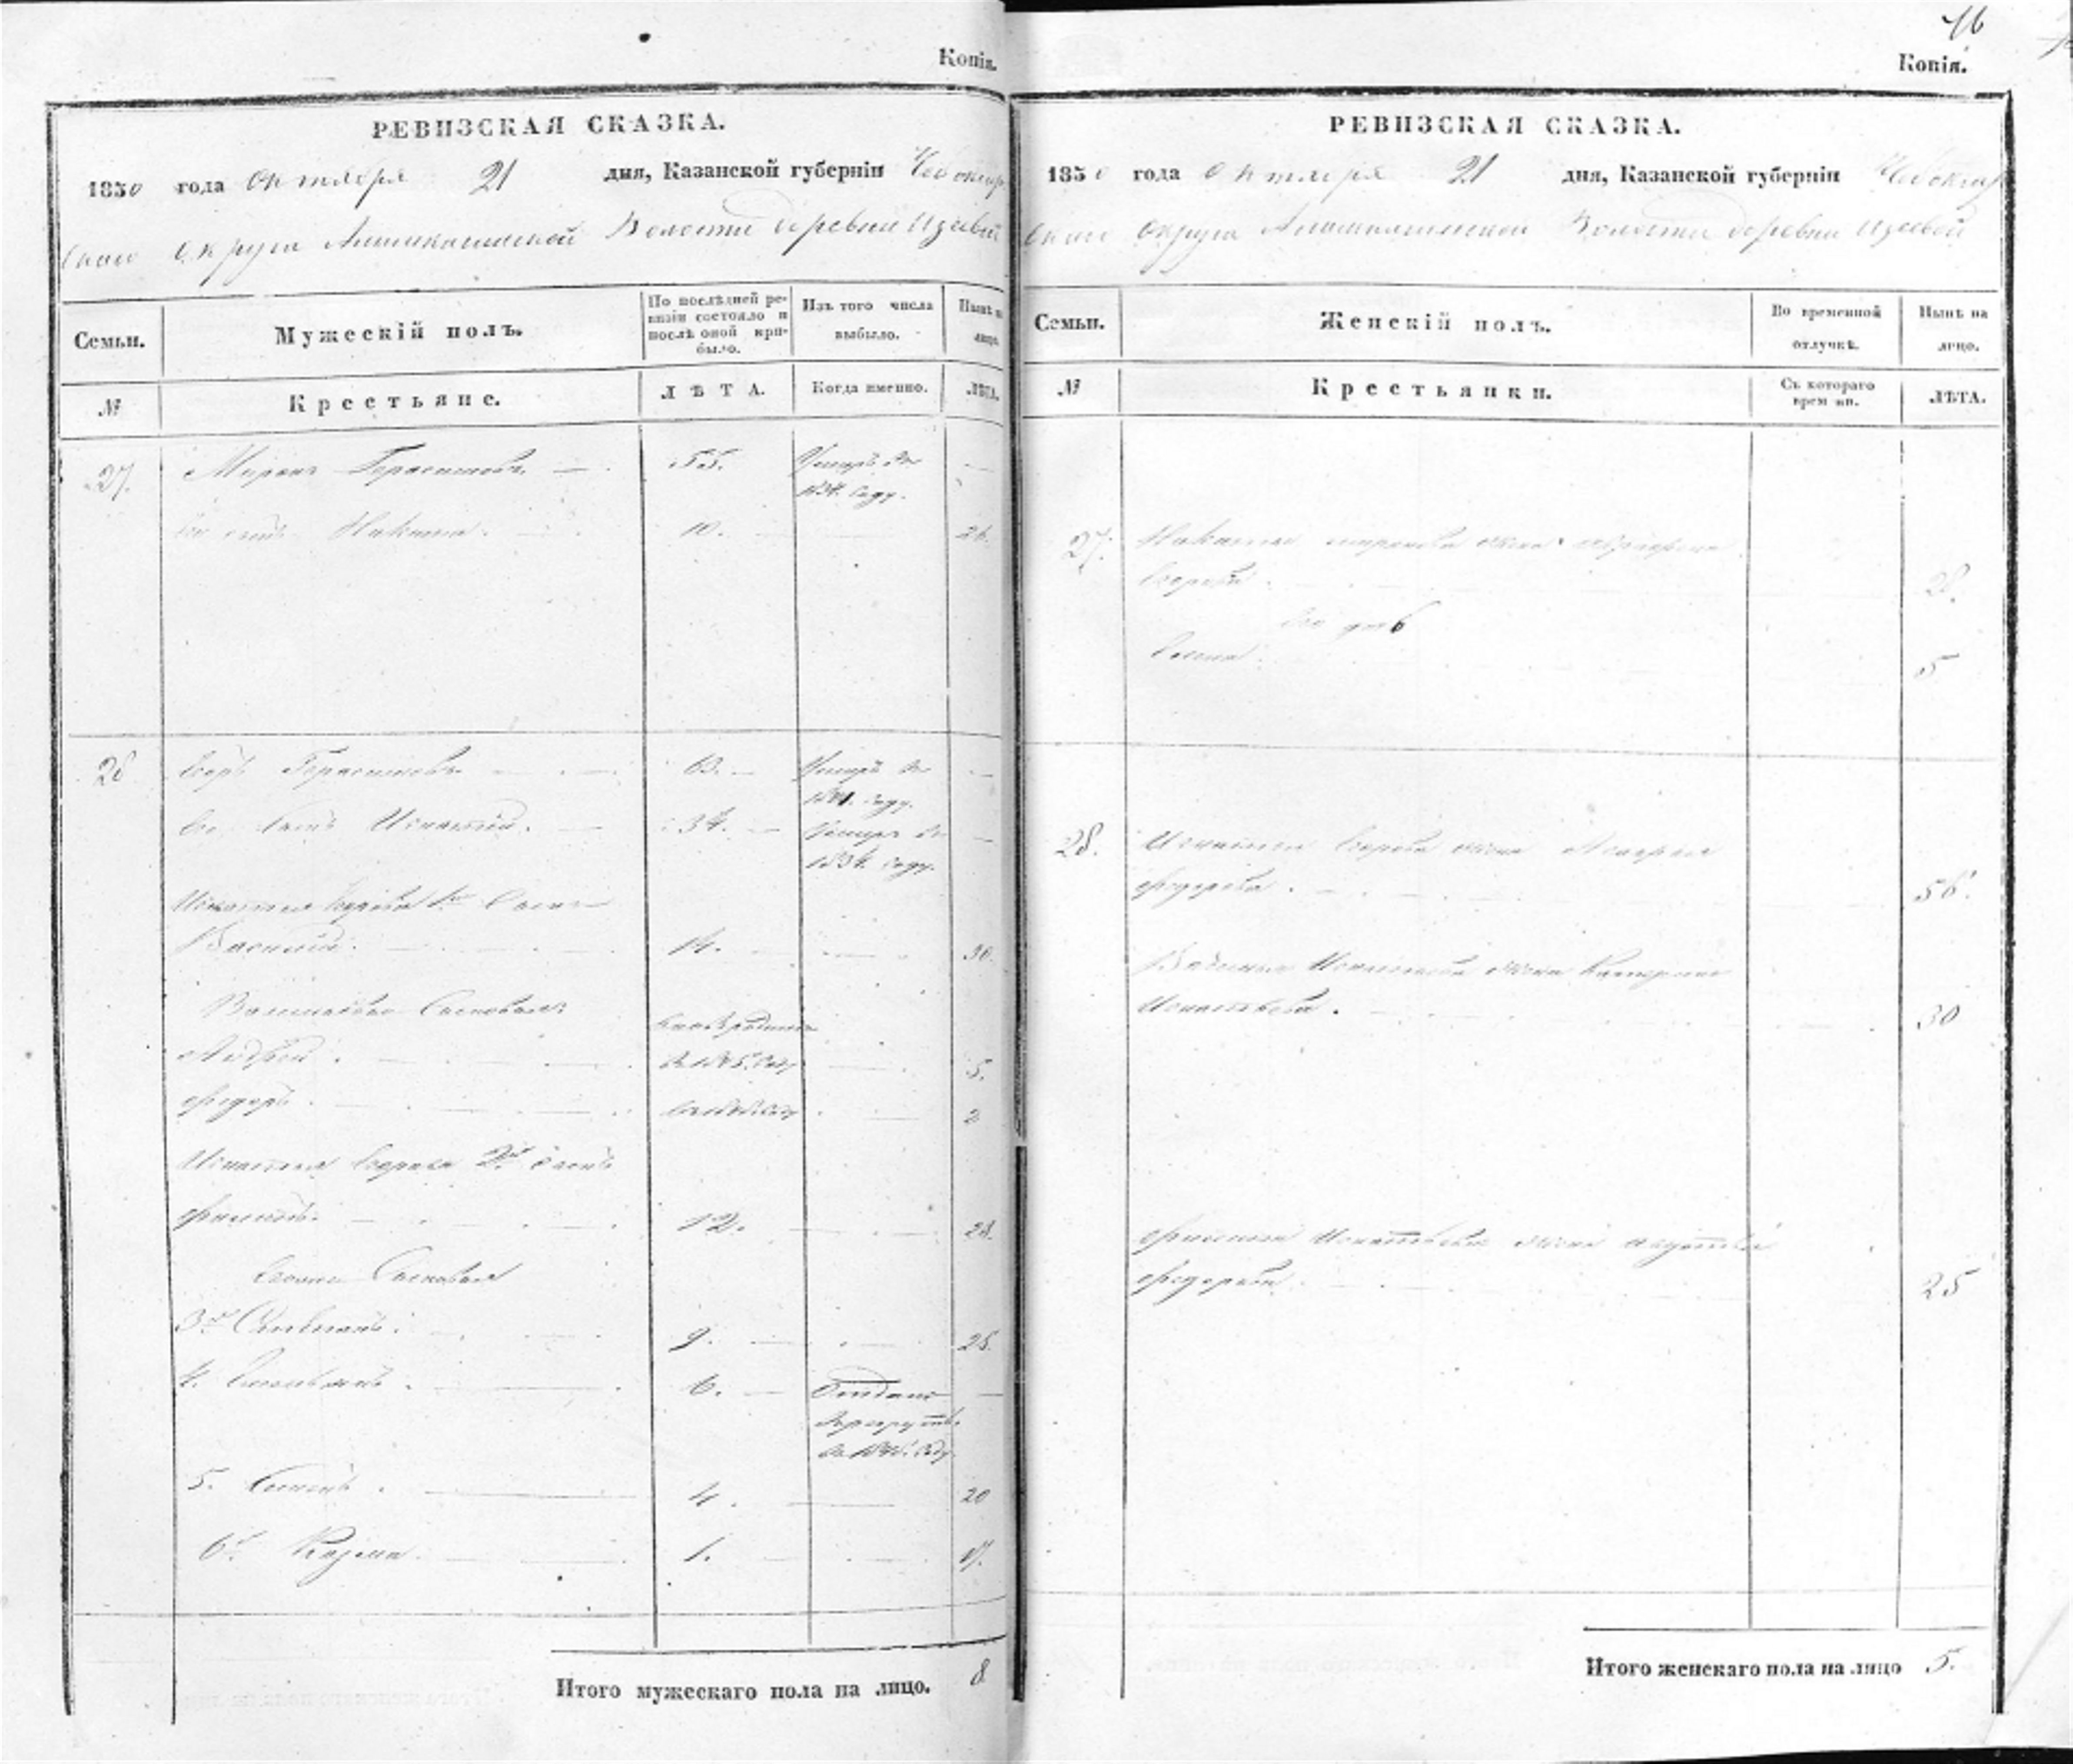 Копія.
РЕВИЗСКАЯ СКАЗКА.
1850 года Октября 21 дня, Казанской губерніи Чебоксар
скаго округа Волости деревни Изѣевой
Семьи.
Мужескій полъ.
По послѣдней ре-
визіи состояло и
послѣ оной при-
было.
Изъ того числа
выбыло.
Нынѣ на
лицо.
№
Крестьяне.
ЛѢТА.
Когда именно.
ЛѢТА.
27. Миронъ Герасимовъ 55. Умеръ въ
1834. году.
Его сынъ Никита. 10. 26.
28 Егоръ Герасимовъ 63. Умеръ въ
1841. году.
Его сынъ Игнатій. 34. Умеръ въ
1834. году.
Игнатья Егорова 1й сынъ
Василій. 14. 30.
Васильевы сыновья
Андрей. въ 1845. году 5.
Федоръ. 2
Игнатья Егорова 2й сынъ
Филипъ. 12. 28.
сыновья
3й Степанъ. 9. 25.
4. 6. Отданъ
въ рекруты
5. Семенъ. 4. 20
6й Кузма. 1. 17.
Итого мужескаго пола на лицо. 8
16
Копія.
РЕВИЗСКАЯ СКАЗКА.
1850 года Октября 21 дня, Казанской губерніи Чебоксар
скаго округа Волости деревни Изѣевой
Семьи.
Женскій полъ.
Во временной
отлучкѣ.
Нынѣ на
лицо.
№
Крестьянки.
Съ котораго
времени.
ЛѢТА.
27. Никиты Миронова жена
Егорова. 28.
Его дочь
Елена. 5
28. Игнатья Егорова жена
Федорова. 56.
Василья Игнатьева жена Катерина
Игнатьева. 30
Филипа Игнатьева жена
Федорова. 25
Итого женскаго пола на лицо 5.